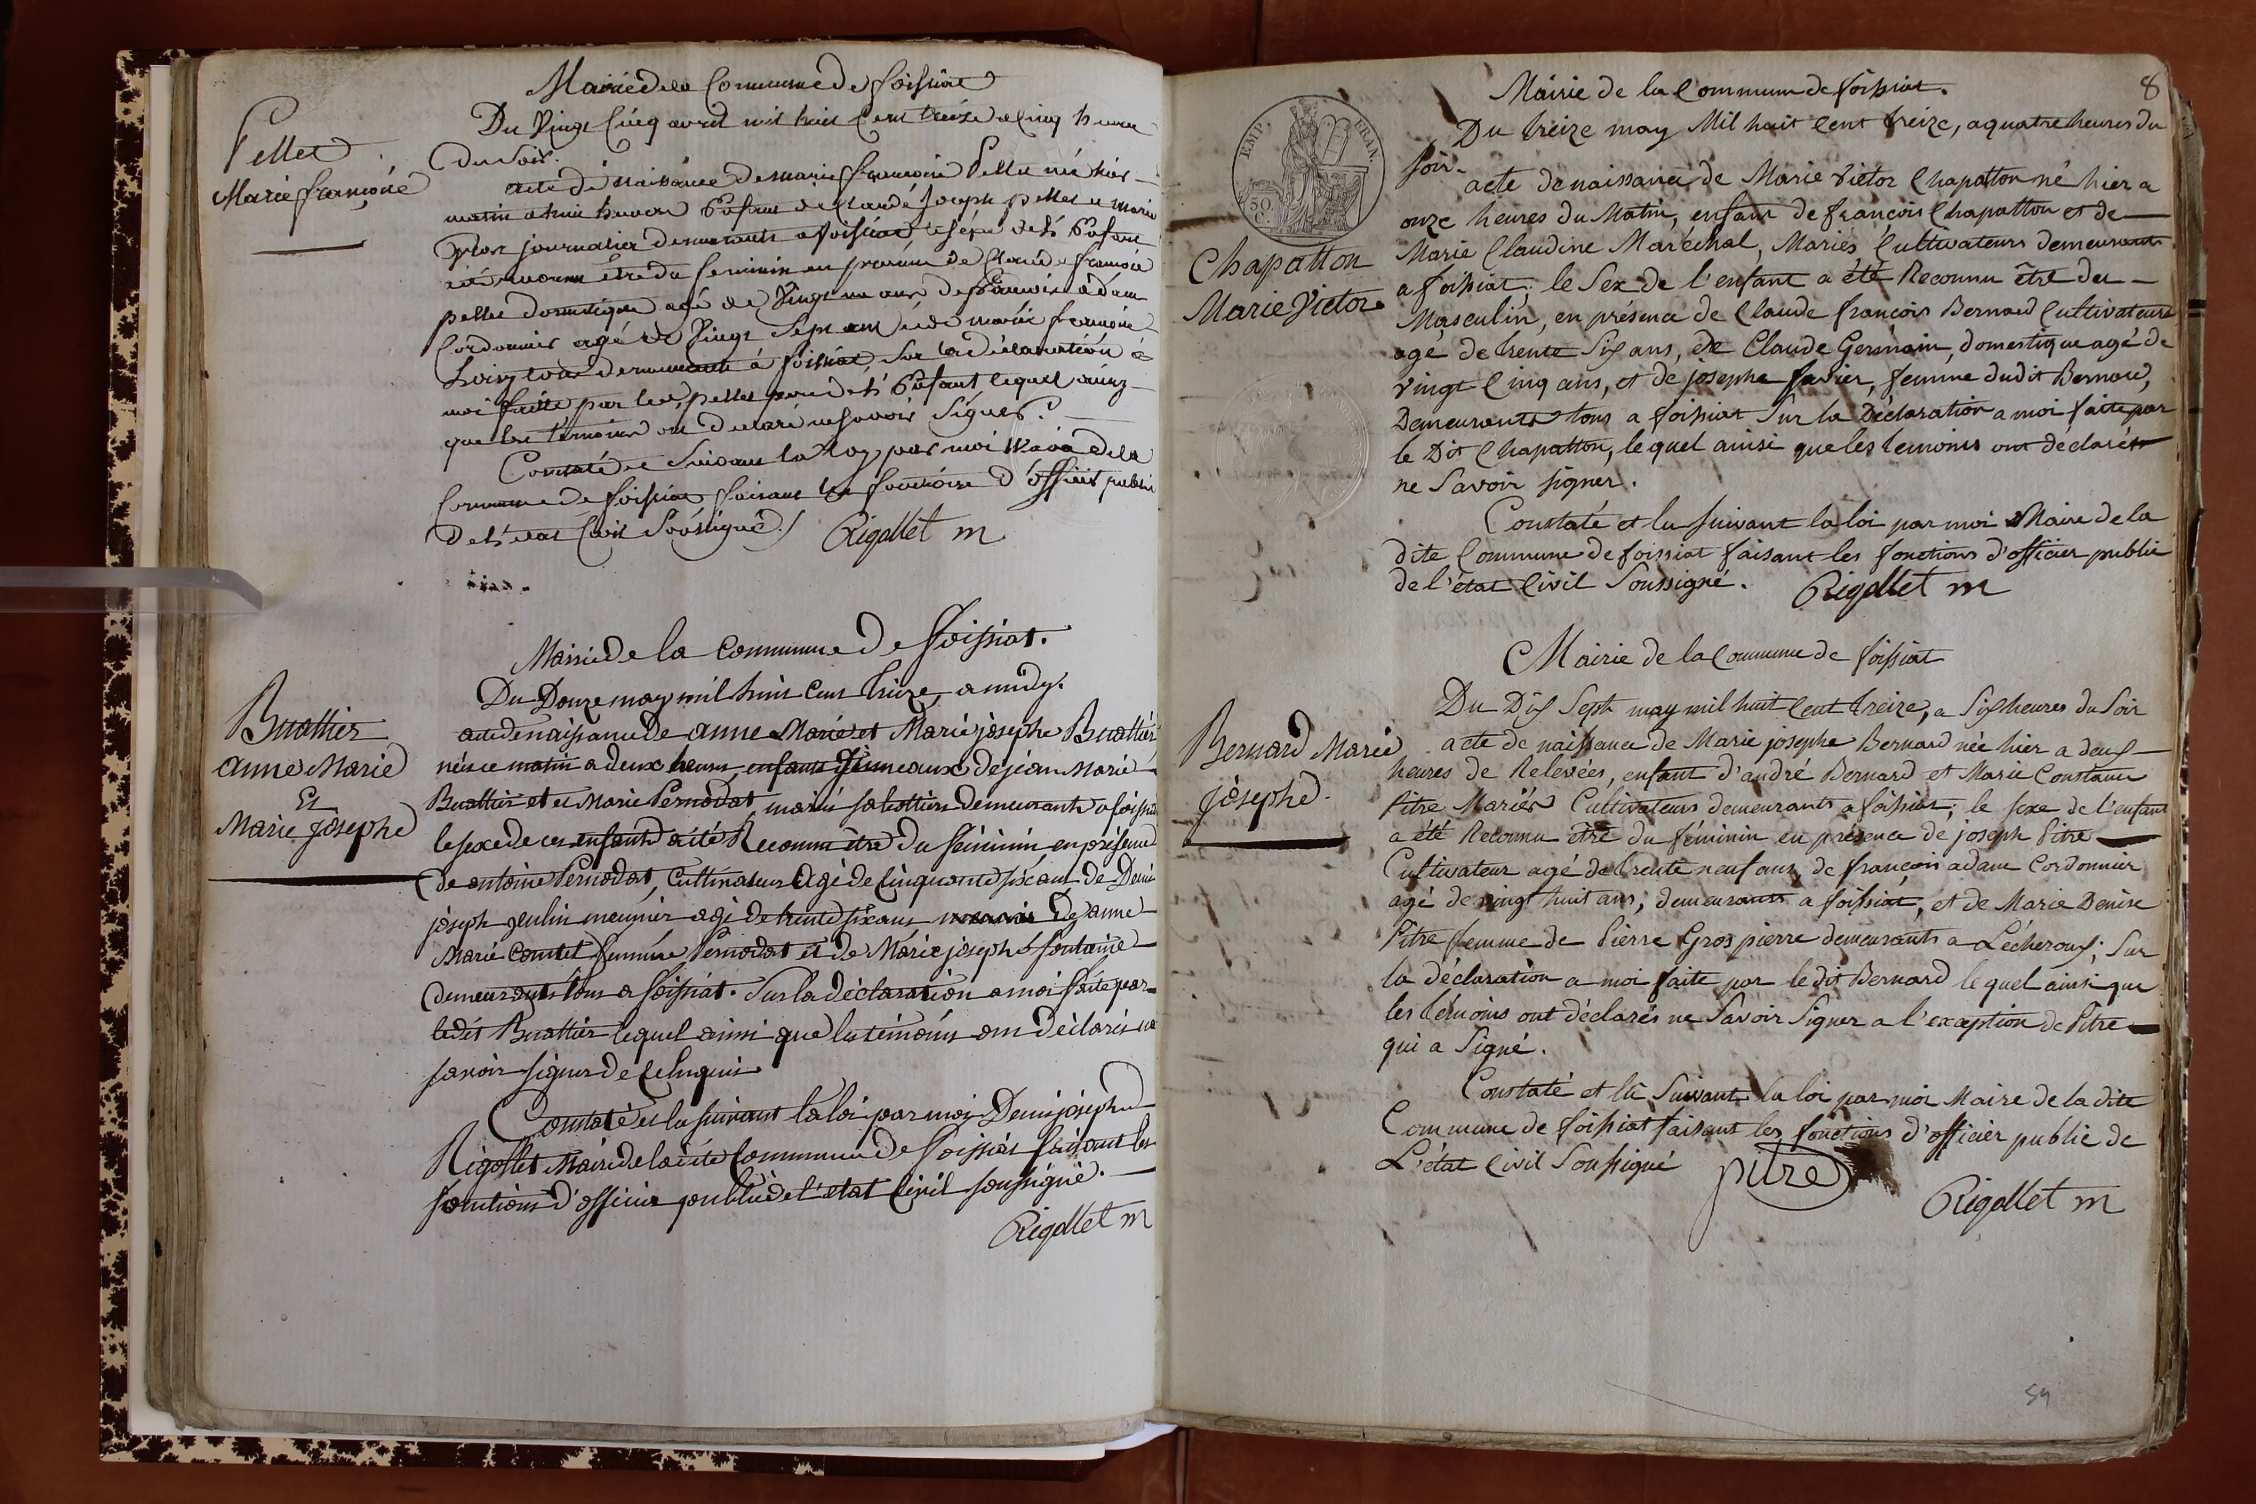 Mairie de la Commune de foissiat
Du Vingt Cinq avril mil huit Cent treize a Cinq heures
du Soir.
Pellet
Marie françoise
acte de naissance de marie françoise Pellet née hier
matin a huit heures Enfant de Claude Joseph pellet et marie
journalier demeurants a foissiat, le sexe de l'Enfant
a été reconnu être du feminin en presence de Claude françois
pellet domestique agé de Vingt un ans, de françois adam
Cordonnier agé de Vingt Sept ans et de marie françoise
tous demeurants á foissiat, Sur la déclaration á
moi faitte par led. pellet pere de l'Enfant lequel ainsy
que les témoins ont declaré ne savoir Signer.
Constaté Suivant la loy par moi Maire de la
Commune de foissiat faisant les fonctions d'officier public
de l'etat Civil Soussigné./ Rigollet m
Mairie de la Commune de foissiat.
Du Douze may mil huit Cent treize, a midy.
Buattier
anne Marie
Et
Marie Josephe
acte de naissance de anne Marie et Marie josephe Buattier
nées ce matin a deux heures, enfants jumeaux de jean Marie
Buattier et de Marie Pernodat mariés sabottiers demeurants a foissiat
le sexe de ces enfants a été Reconnu être du féminin, en présence
de antoine Pernodat, Cultivateur agé de Cinquante six ans de Denis
joseph meunier agé de trente six ans de anne
Marie Comtet femme Pernodat et de Marie josephe fontaine
demeurants tous a foissiat. Sur la déclaration a moi faite par
ledit Buattier lequel ainsi que les témoins ont déclarés ne
savoir signer de ce enquis
Constaté et lu suivant la loi par moi Denis joseph
Rigollet Maire de la dite Commune de foissiat faisant les
fonctions d'officier public de l'etat Civil soussigné.
Rigollet m
8
Mairie de la Commune de foissiat.
EMP. FRAN.
50 C.
Du treize may Mil huit Cent treize, a quatre heures du
soir.
Chapatton
Marie Victor
acte de naissance de Marie Victor Chapatton né hier a
onze heures du Matin, enfant de françois Chapatton et de
Marie Claudine Maréchal, Mariés, Cultivateurs demeurants
a foissiat; le Sex de l'enfant a été Reconnu être du
Masculin, en présence de Claude françois Bernard Cultivateur
agé de trente Six ans, de Claude Germain, domestique agé de
vingt Cinq ans, et de josephe favier, femme dudit Bernard,
Demeurants tous a foissiat Sur la Déclaration a moi faite par
le Dit Chapatton, lequel ainsi que les temoins ont declarés
ne Savoir signer.
Constaté et lu suivant la loi par moi Maire de la
dite Commune de foissiat faisant les fonctions d'officier public
de l'état Civil Soussigné. Rigollet m
Mairie de la Commune de foissiat
Du Dix Sept may mil huit Cent treize, a Six heures du Soir
Bernard Marie
josephe.
acte de naissance de Marie josephe Bernard née hier a deux
heures de Relevées, enfant d'andré Bernard et Marie Constance
Pitre Mariés Cultivateurs demeurants a foissiat; le sexe de l'enfant
a été Reconnu être du féminin en présence de joseph Pitre
Cultivateur agé de trente neuf ans, de françois adam Cordonnier
agé de vingt huit ans, demeurants a foissiat, et de Marie Denise
Pitre femme de Pierre Gros pierre demeurants a Lécheroux; Sur
la déclaration a moi faite par ledit Bernard lequel ainsi que
les témoins ont déclarés ne Savoir Signer a l'exception de Pitre
qui a Signé.
Constaté et lu Suivant la loi par moi Maire de la dite
Commune de foissiat faisant les fonctions d'officier public de
L'état Civil Soussigné pitre
Rigollet m
59